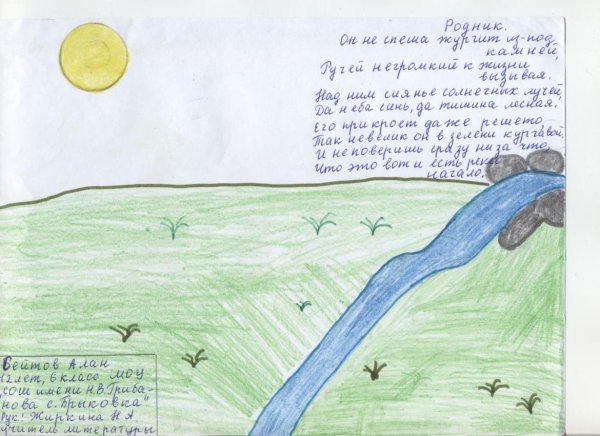 Родник.
Он не спеша журчит из-под
камней,
Ручей негромкий к жизни
вызывая.
Над ним сиянье солнечных лучей,
Да неба синь, да тишина лесная.
Его прикроет даже решето,
Так невелик он в зелени курчавой,
И не поверишь сразу ни за что,
Что это вот и есть реки
начало.
Сейтов Алан
12 лет, 6 класс МОУ
„СОШ имени Н.В. Гриба-
нова с. Брыковка"
Рук: Жиркина Н А
учитель литературы